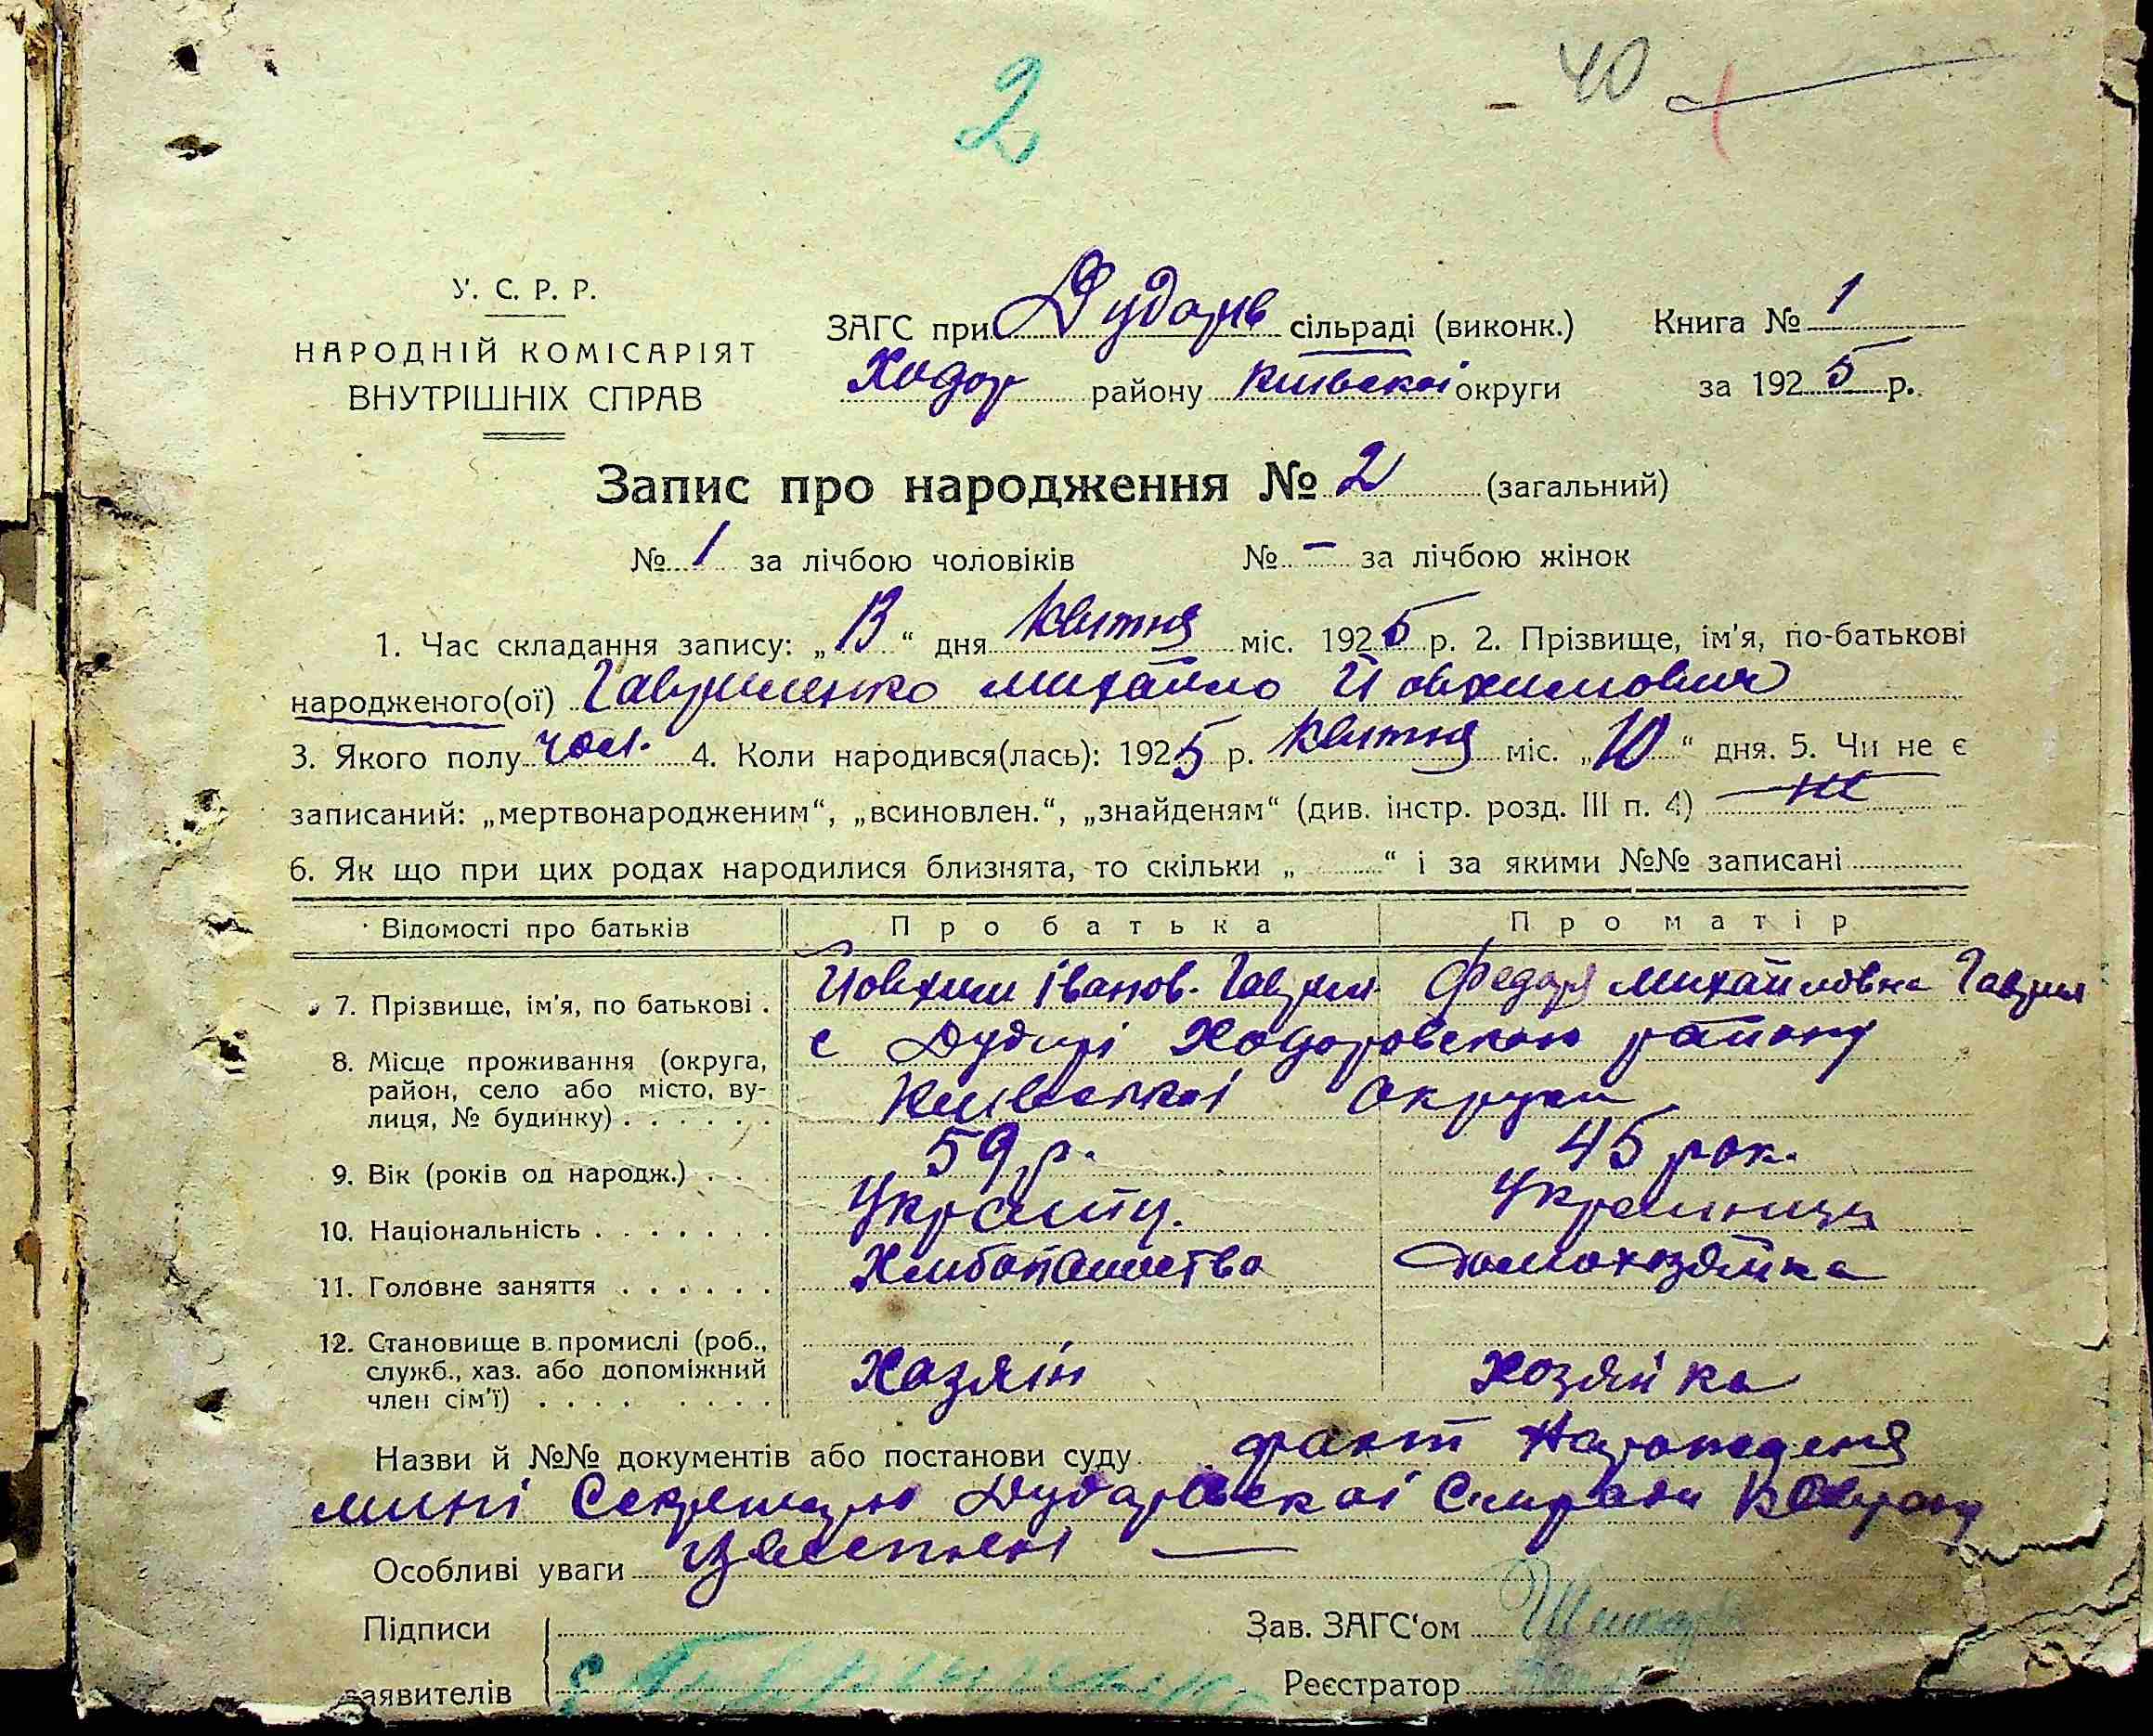 2
40
У. С. Р. Р.
НАРОДНІЙ КОМІСАРІЯТ
ВНУТРІШНІХ СПРАВ
ЗАГС при Дударів сільраді (виконк.) Книга № 1
Ходор району Київскоі округи за 1925 р.
Запис про народження № 2 (загальний)
№ 1 за лічбою чоловіків № – за лічбою жінок
1. Час складання запису: „13“ дня Квитня міс. 1925 р. 2. Прізвище, ім'я, по-батькові
народженого(ої) Гавриленко Михайло Йовхимович
3. Якого полу чол. 4. Коли народився(лась): 1925 р. Квитня міс. „10“ дня. 5. Чи не є
записаний: „мертвонародженим“, „всиновлен.“, „знайденям“ (див. інстр. розд. III п. 4) не
6. Як що при цих родах народилися близнята, то скільки „ “ і за якими №№ записані
Відомості про батьків Про батька Про матір
7. Прізвище, ім'я, по батькові . Йовхим Іванов. Гаврил Федора Михайловна Гаврил
8. Місце проживання (округа, с Дударі Ходоровского району
район, село або місто, ву- Київскоі Округи
лиця, № будинку) . . . . . .
9. Вік (років од народж.) . . . 59 р. 45 рок.
10. Національність . . . . . . . Украінц. Украинка
11. Головне заняття . . . . . . Хлибопашество Домохозяйка
12. Становище в промислі (роб.,
служб., хаз. або допоміжний Хазяін Хозяйка
член сім'ї) . . . . . . . .
Назви й №№ документів або постанови суду факт Нарождения
мині Секретарю Дударівскоі Силради
Особливі уваги
Підписи Зав. ЗАГС'ом
заявителів Гавриленко Реєстратор